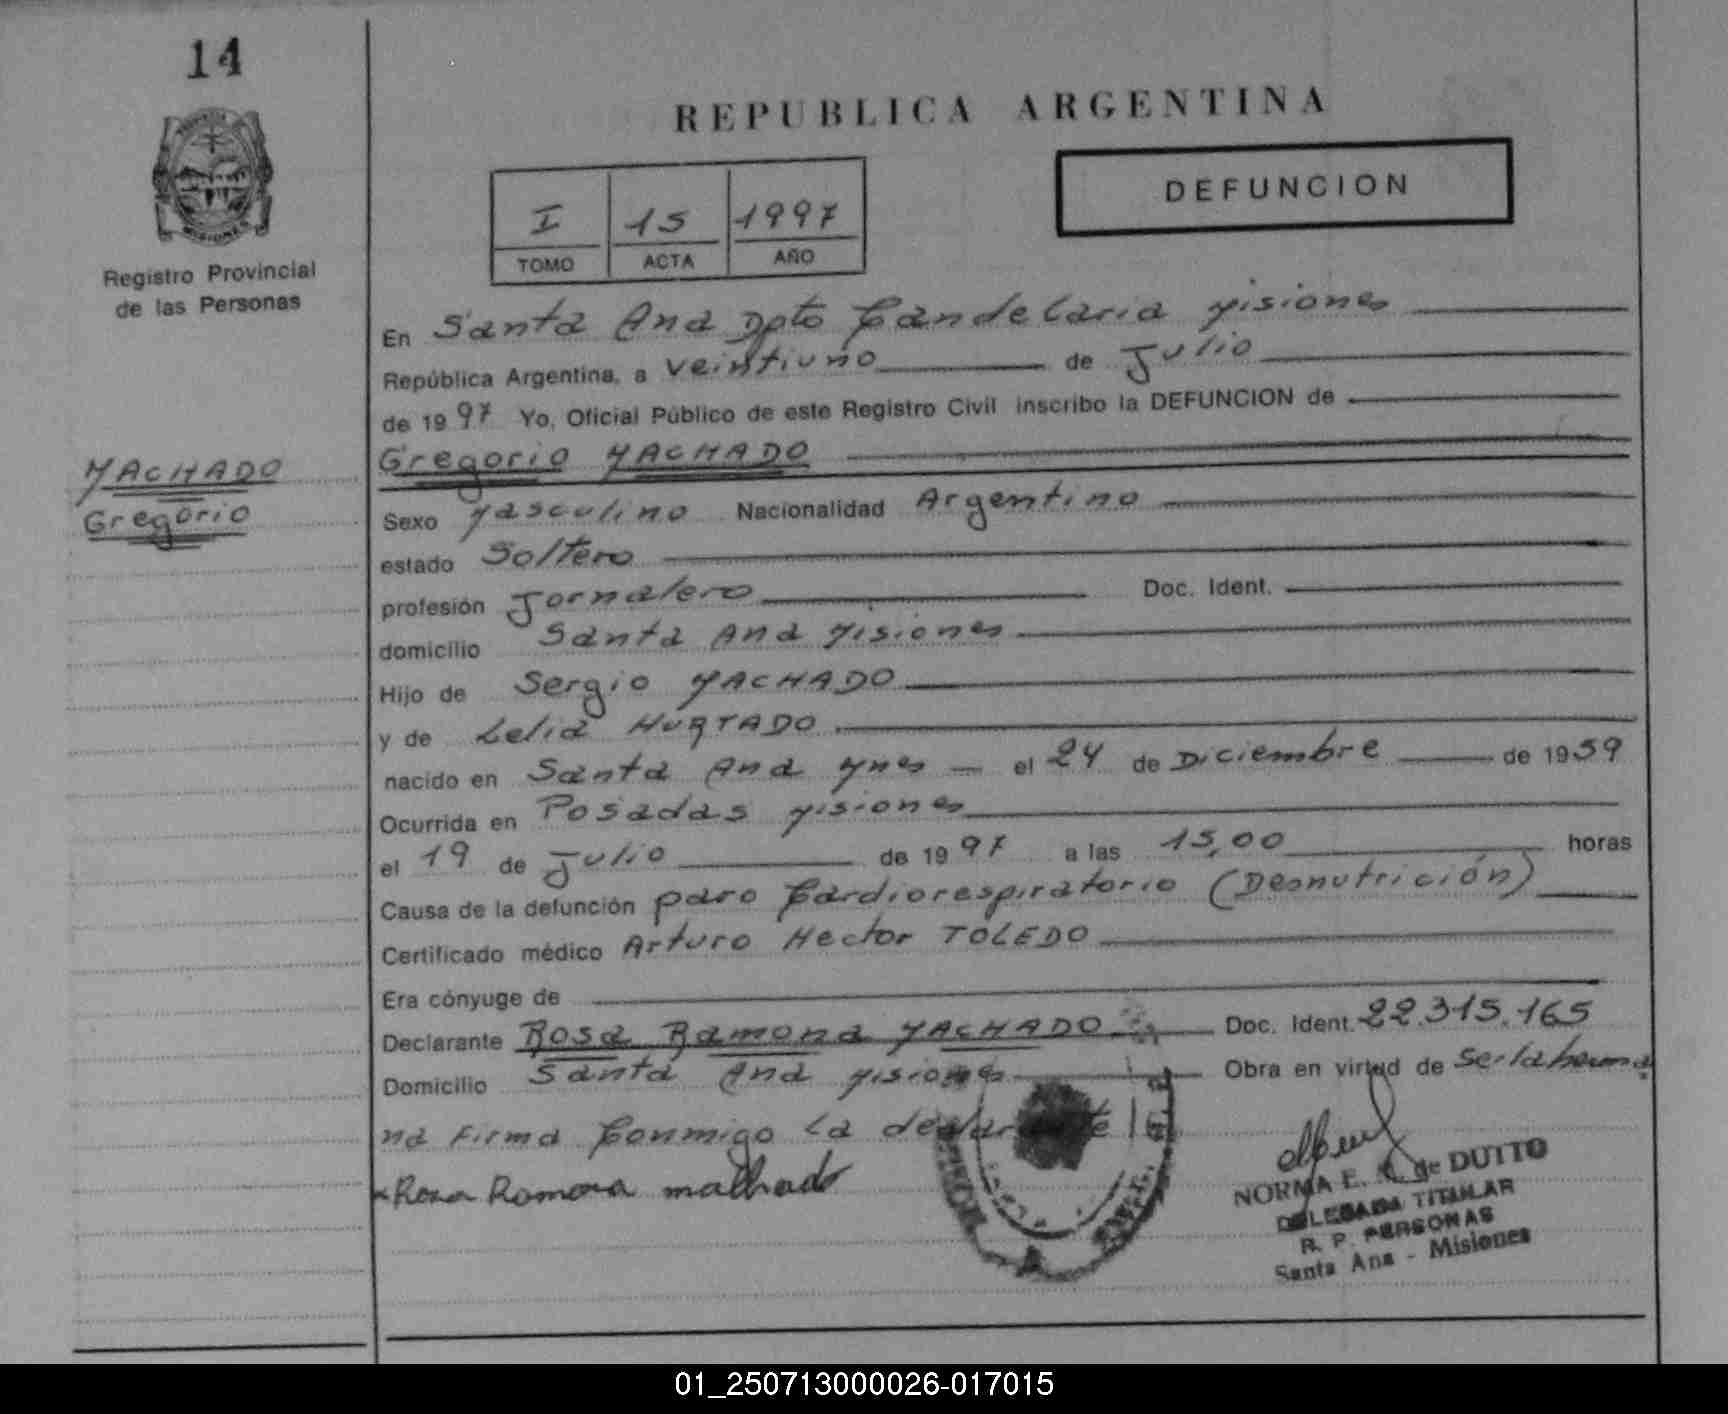 14
REPUBLICA ARGENTINA
DEFUNCION
I 15 1997
TOMO ACTA AÑO
MISIONES
Registro Provincial
de las Personas
En Santa Ana Dpto Candelaria Misiones
República Argentina, a veintiuno de Julio
de 1997 Yo, Oficial Público de este Registro Civil inscribo la DEFUNCION de
MACHADO
Gregorio
Gregorio MACHADO
Sexo Masculino Nacionalidad Argentino
estado Soltero
profesión Jornalero Doc. Ident.
domicilio Santa Ana Misiones
Hijo de Sergio MACHADO
y de Lelia HURTADO
nacido en Santa Ana Mnes el 24 de Diciembre de 1959
Ocurrida en Posadas Misiones
el 19 de Julio de 1997 a las 15,00 horas
Causa de la defunción paro Cardiorespiratorio (Desnutrición)
Certificado médico Arturo Hector TOLEDO
Era cónyuge de
Declarante Rosa Ramona MACHADO Doc. Ident. 22.315.165
Domicilio Santa Ana Misiones Obra en virtud de Ser la herma
na Firma Conmigo La declarante
Rosa Ramona malhado
NORMA E. de DUTTO
DELEGADA TITULAR
R. P. PERSONAS
Santa Ana - Misiones
01_250713000026-017015